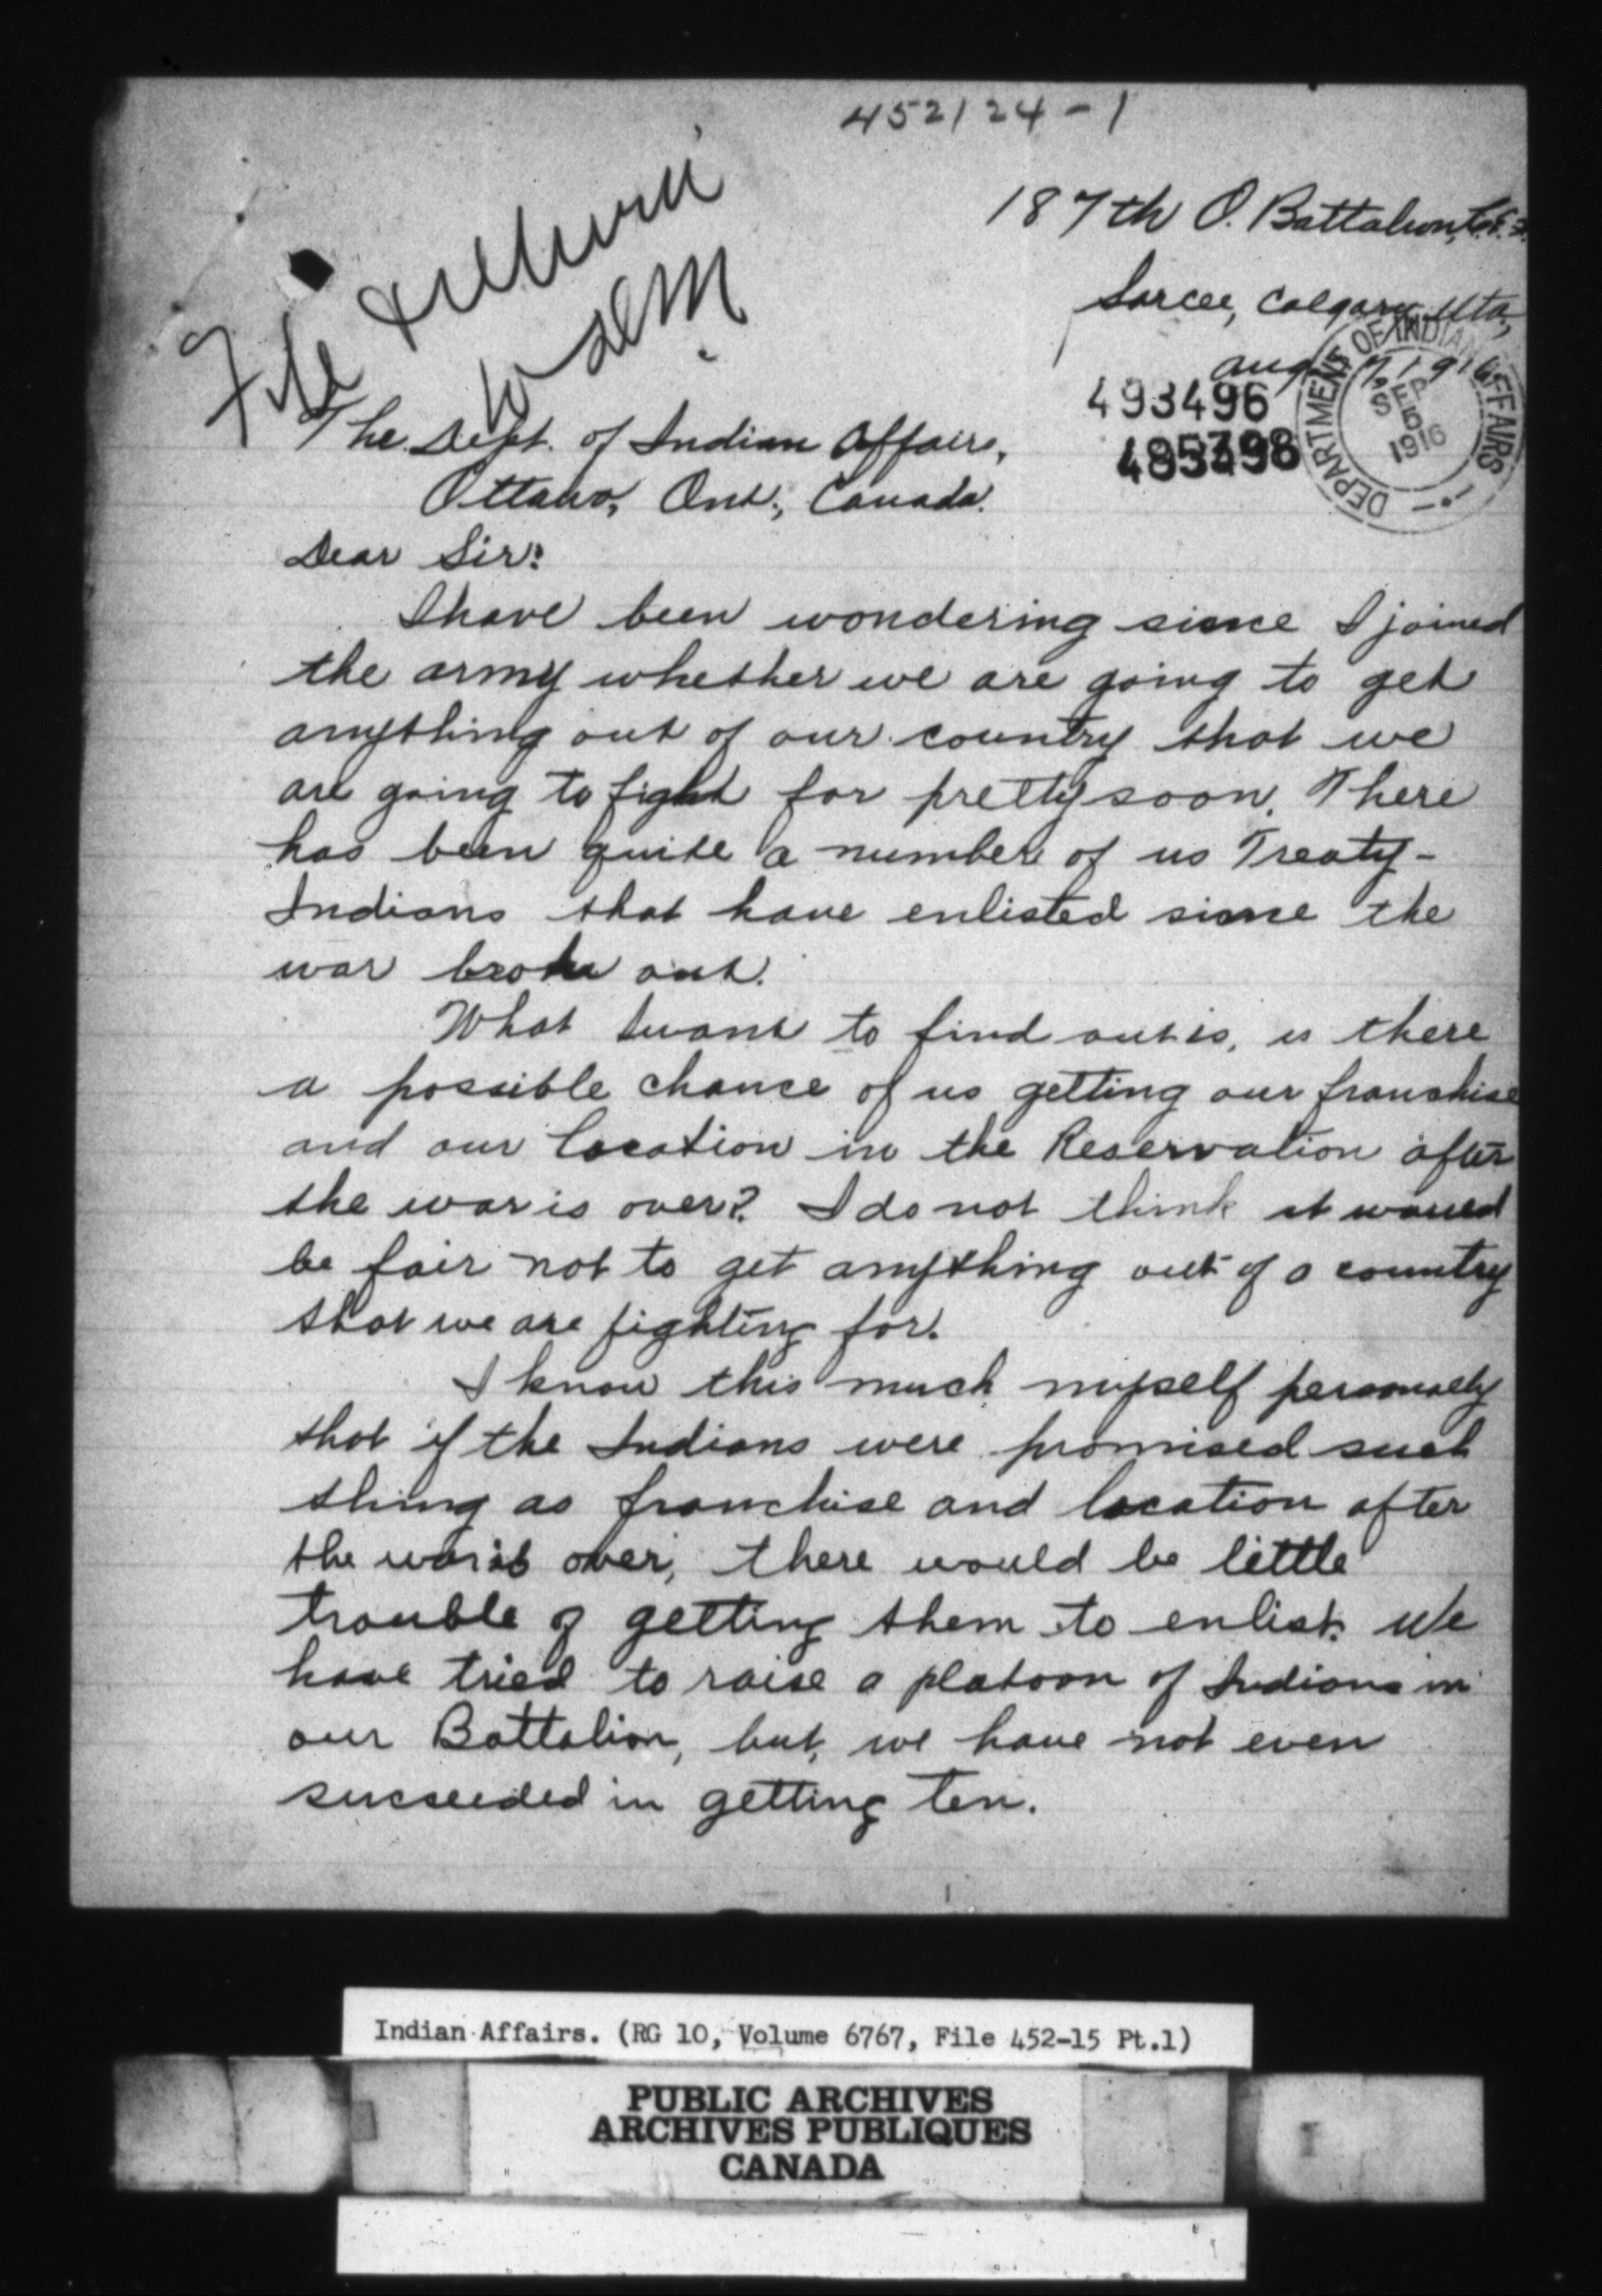 452124-1
187th O. Battalion, C.E.F.
Sarcee, Calgary Alta,
Aug 1916
File
493496
DEPARTMENT OF INDIAN AFFAIRS
SEP 5 1916
The Dept. of Indian Affairs,
Ottawa, Ont., Canada.
Dear Sir:
I have been wondering since I joined
the army whether we are going to get
anything out of our country that we
are going to fight for pretty soon. There
has been quite a number of us Treaty-
Indians that have enlisted since the
war broke out.
What I want to find out is, is there
a possible chance of us getting our franchise
and our location in the Reservation after
the war is over? I do not think it would
be fair not to get anything out of a country
that we are fighting for.
I know this much myself personally
that if the Indians were promised such
thing as franchise and location after
the war is over, there would be little
trouble of getting them to enlist. We
have tried to raise a platoon of Indians in
our Battalion, but, we have not even
succeeded in getting ten.
Indian Affairs. (RG 10, Volume 6767, File 452-15 Pt.1)
PUBLIC ARCHIVES
ARCHIVES PUBLIQUES
CANADA